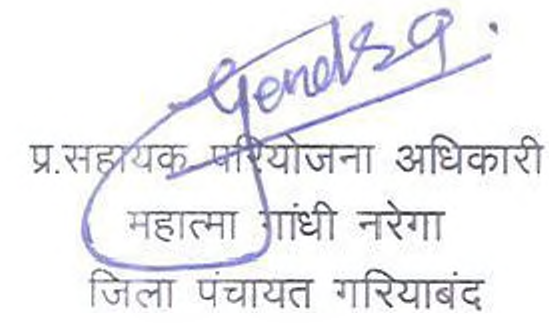 प्र.सहायक परियोजना अधिकारी
महात्मा गांधी नरेगा
जिला पंचायत गरियाबंद